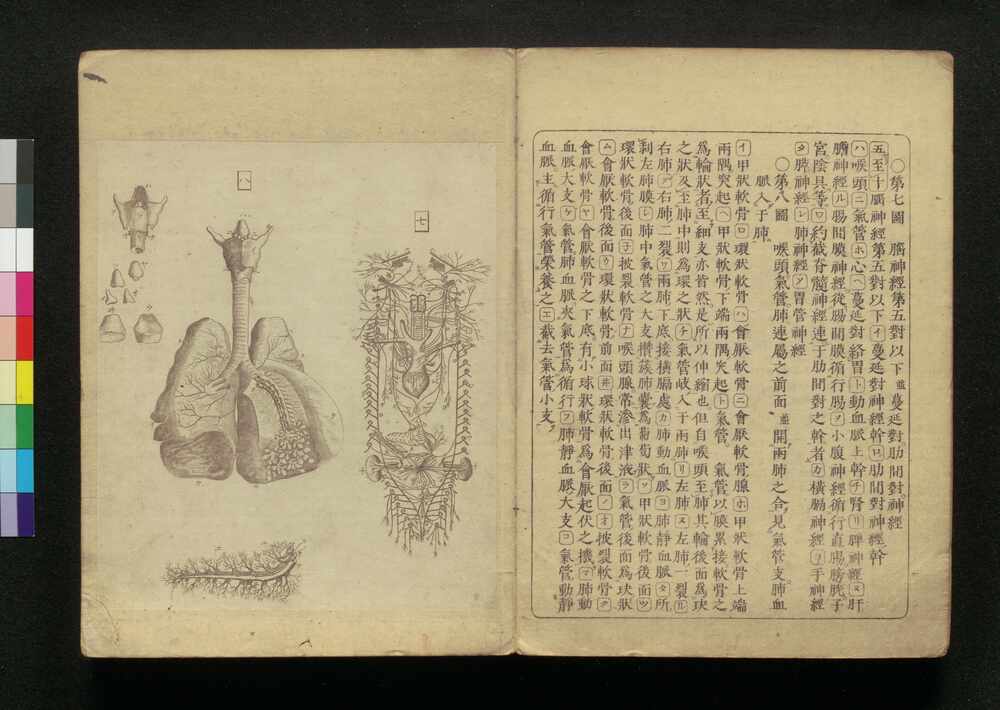 〇第七圖 腦神經第五對以下並蔓延對肋間對神經
五至十腦神經第五對以下イ蔓延對神經幹ロ肋間對神經幹
ハ喉頭ニ氣管ホ心ヘ蔓延對絡胃ト動血脈上幹チ腎リ脾神經ヌ肝
膽神經ル腸間膜神經從腸間膜循行腸ヲ小腹神經循行直腸膀胱子
宮陰具等ワ約截脊髓神經連于肋間對之幹者カ橫膈神經ヨ手神經
タ脾神經レ肺神經ソ胃管神經
〇第八圖 喉頭氣管肺連屬之前面並開兩肺之合見氣管支肺血
脈入于肺
イ甲狀軟骨ロ環狀軟骨ハ會厭軟骨ニ會厭軟骨腺ホ甲狀軟骨上端
兩隅突起ヘ甲狀軟骨下端兩隅突起ト氣管 氣管以膜累接軟骨之
爲輪狀者至細支亦皆然是所以伸縮也但自喉頭至肺其輪後面爲玦
之狀及至肺中則爲環之狀チ氣管岐入于兩肺リ左肺ヌ左肺一裂ル
右肺ヲ右肺二裂ワ兩肺下底接橫膈處カ肺動血脈ヨ肺靜血脈タ所
剥左肺膜レ肺中氣管之大支攢蔟肺囊爲葡萄狀ソ甲狀軟骨後面ツ
環狀軟骨後面ネ披裂軟骨ナ喉頭腺常滲出津液ラ氣管後面爲玦狀
ム會厭軟骨後面ウ環狀軟骨前面ヰ環狀軟骨後面ノオ披裂軟骨ク
會厭軟骨ヤ會厭軟骨之下底有小球狀軟骨爲會厭起伏之機マ肺動
血脈大支ケ氣管肺血脈夾氣管爲循行フ肺靜血脈大支コ氣管動靜
血脈主循行氣管榮養之エ截去氣管小支
七
八